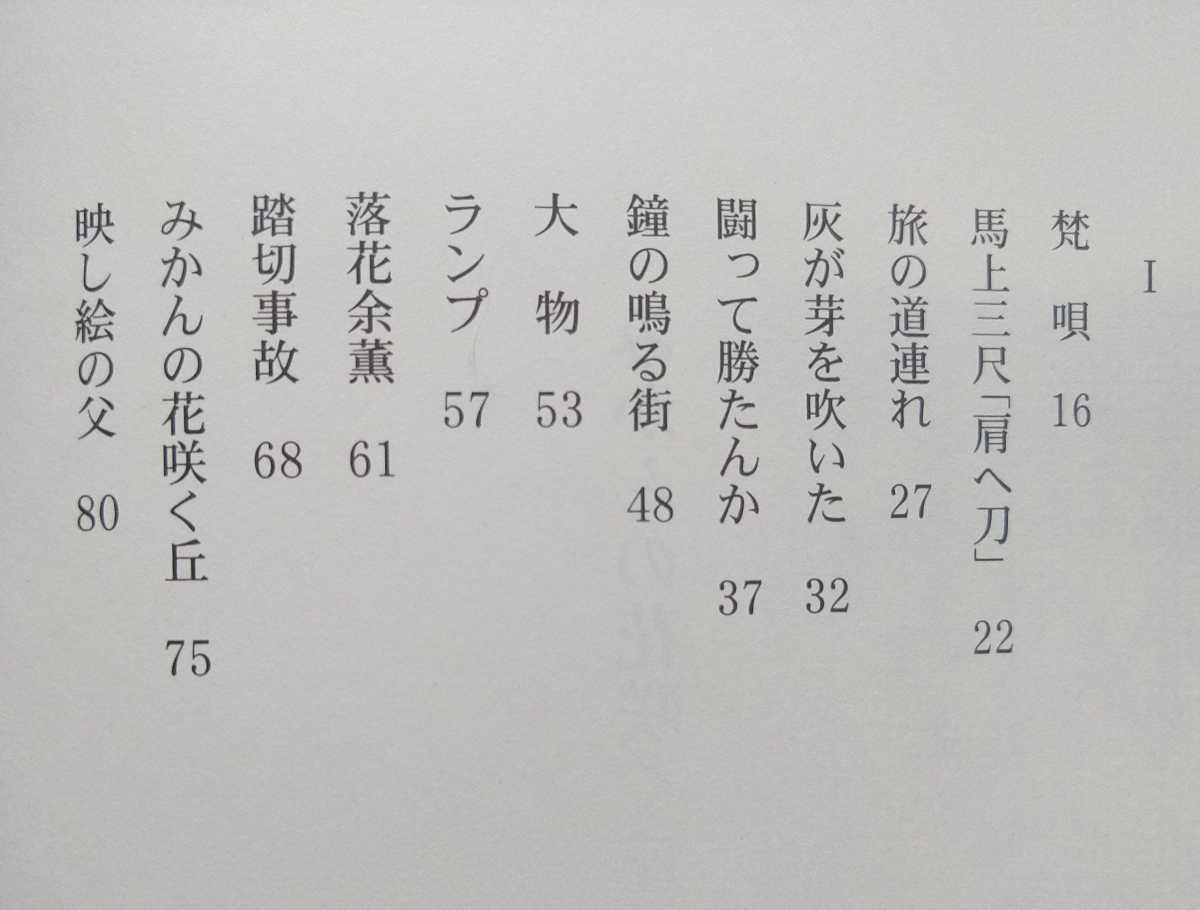 I
梵　唄　16
馬上三尺「肩へ刀」　22
旅の道連れ　27
灰が芽を吹いた　32
闘って勝たんか　37
鐘の鳴る街　48
大　物　53
ランプ　57
落花余薫　61
踏切事故　68
みかんの花咲く丘　75
映し絵の父　80